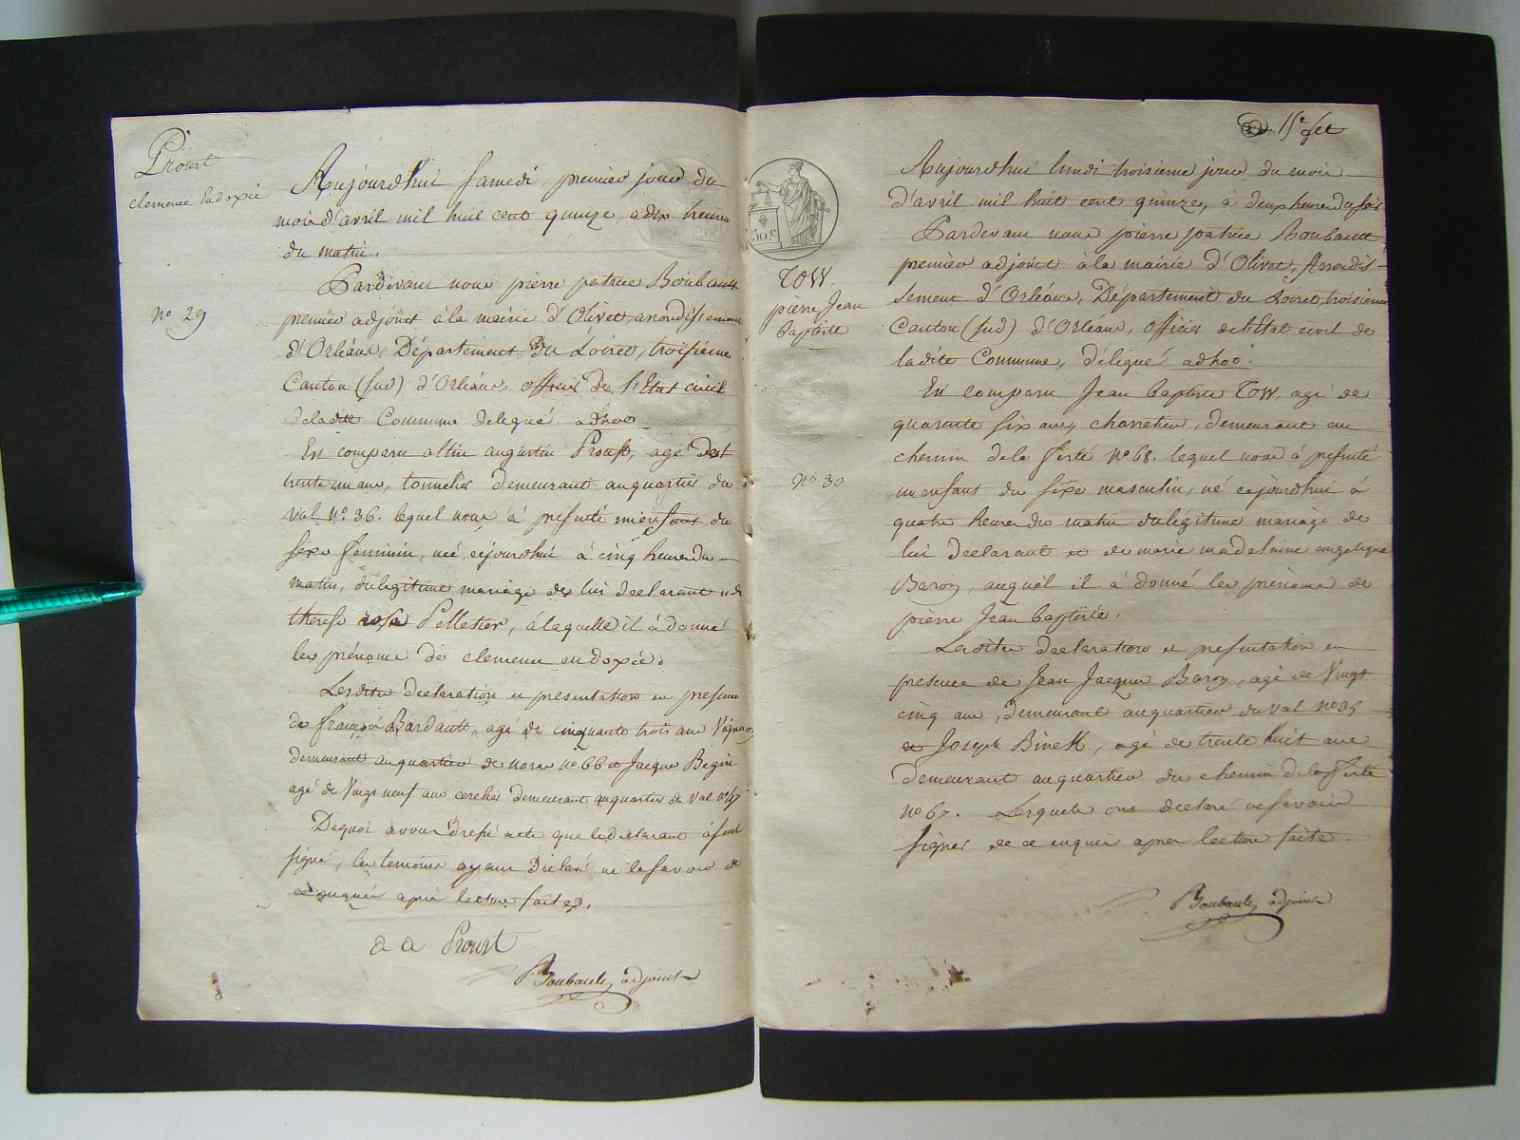 Proust
clemence Eudoxie
Nº 29
Aujourdhui samedi premier jour du
mois d'avril mil huit cent quinze, a dix heures
du matin.
Pardevant nous pierre patrice Boubault
premier adjoint à la mairie d'Olivet, arrondissement
d'Orléans, Département du Loiret, troisieme
Canton (sud) d'Orléans officier de l'Etat civil
deladite Commune delegué adhoc
En comparu augustin Proust, agé de
trente un ans, tonnelier demeurant auquartier du
val Nº 36. lequel nous à presenté un enfant du
sexe feminin, née cejourdhui à cinq heures du
matin, du legitime mariage de lui declarant et de
therese rose Pelletier, à laquelle il à donné
les prénoms de clemence eudoxie.
Lesdites declaration et presentation en presence
de françois Bardault, agé de cinquante trois ans Vigneron
demeurant auquartier de nº 66 et Jacque Begin
agé de Vingt neuf ans cerclier demeurant auquartier du val nº 47
Dequoi avons dressé acte que le declarant à seul
signé, les temoins ayant déclaré ne le savoir de
ce enquis après lecture faite.
a a Proust
P. Boubault, adjoint
15e fet
202
TOW.
pierre Jean
baptiste
Nº 30
Aujourdhui lundi troisieme jour du mois
d'avril mil huit cent quinze, à deux heures du soir
Pardevant nous pierre patrice Boubault
premier adjoint à la mairie d'Olivet, Arrondis-
sement d'Orléans, Département du Loiret, troisieme
Canton (sud) d'Orléans, officier de l'Etat civil de
ladite Commune, délegué adhoc.
En comparu Jean baptiste TOW. agé de
quarante six ans charretier, demeurant au
chemin de la ferté Nº 68. lequel nous à presenté
un enfant du sexe masculin, né cejourdhui à
quatre heures du matin du légitime mariage de
lui declarant et de marie madelaine angelique
Baron, auquel il à donné les prénoms de
pierre Jean baptiste.
Lesdites declaration et presentation en
presence de Jean Jacques Baron, agé de Vingt
cinq ans, demeurant auquartier du val nº 35
et Joseph Binet, agé de trente huit ans
demeurant auquartier du chemin de la ferté
nº 67. Lesquels ont declaré ne savoir
signer de ce enquis apres lecture faite.
Boubault, adjoint